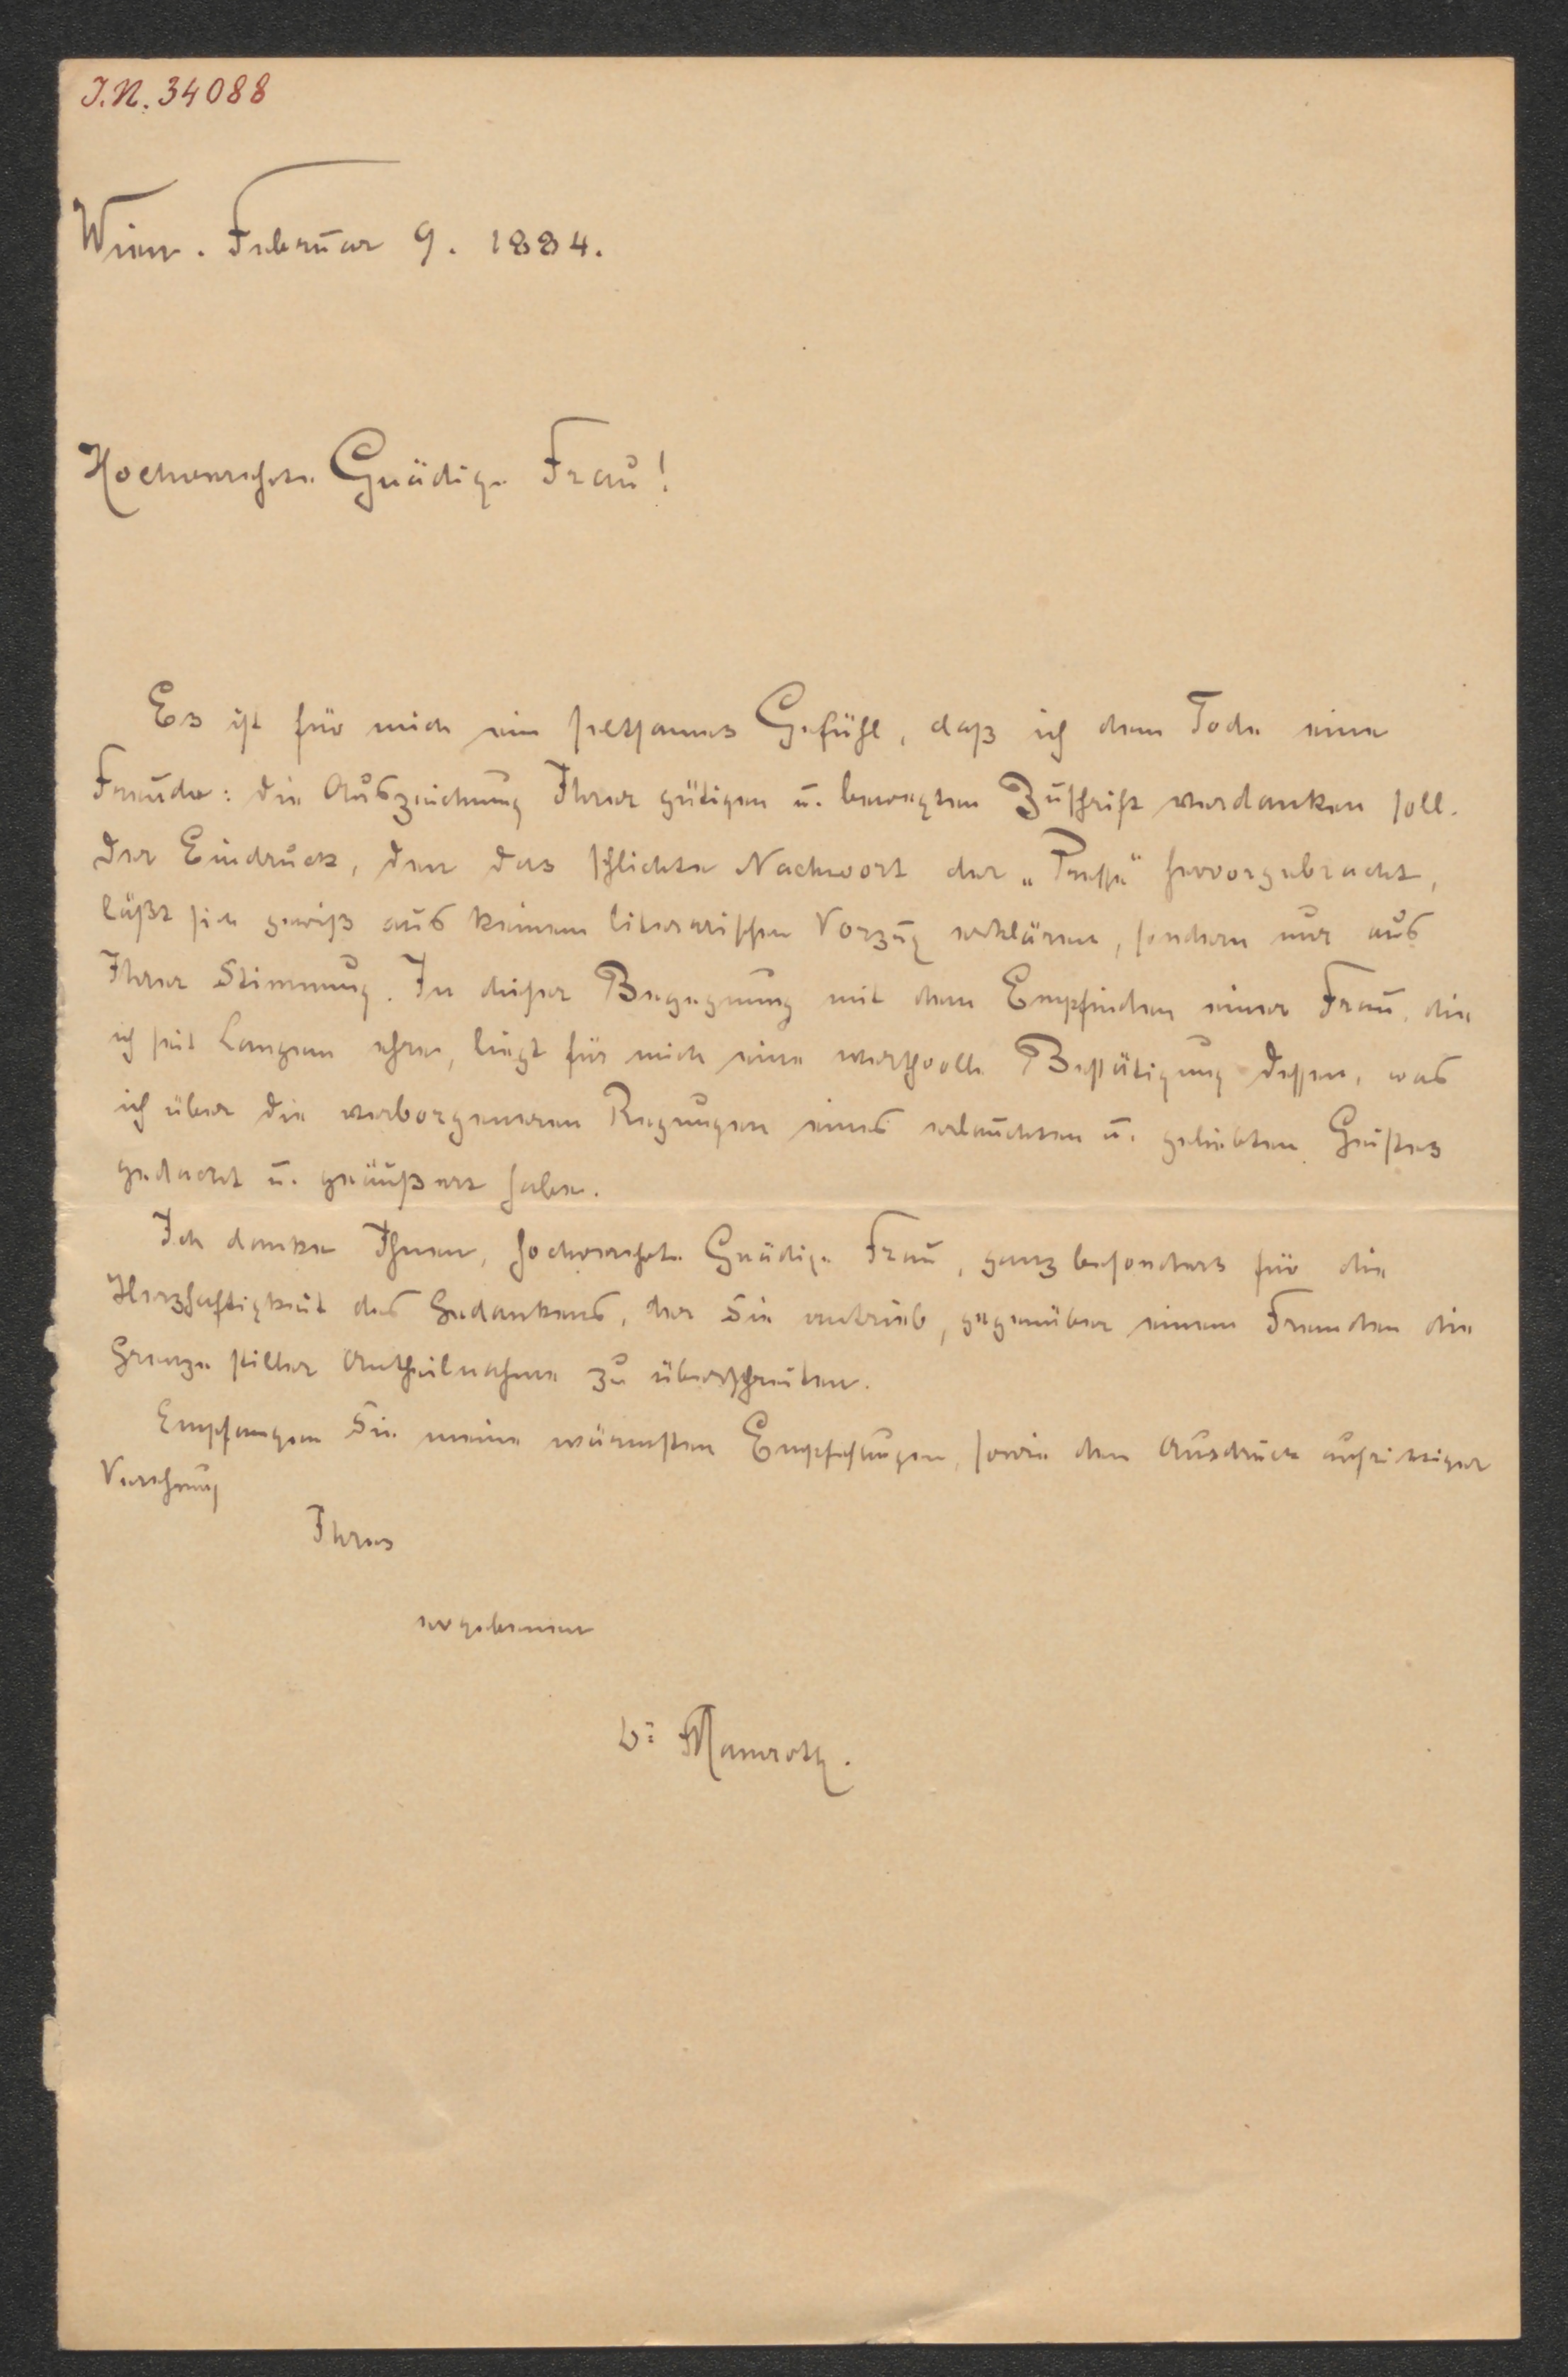 I.N. 34088
Wien. Februar 9. 1884.
Hochverehrte Gnädige Frau!
Es ist für mich ein seltsames Gefühl, daß ich dem Tode eine
Freude: die Auszeichnung Ihrer gütigen u. bewegten Zuschrift verdanken soll.
Der Eindruck, den das schlichte Nachwort der „Presse" hervorgebracht,
läßt sich gewiß aus keinem literarischen Vorzug erklären, sondern nur aus
Ihrer Stimmung. In dieser Begegnung mit dem Empfinden einer Frau, die
ich seit Langem ehre, liegt für mich eine werthvolle Bestätigung dessen, was
ich über die verborgeneren Regungen eines erlauchten u. geliebten Geistes
gedacht u. geäußert habe.
Ich danke Ihnen, hochverehrte Gnädige Frau, ganz besonders für die
Herzhaftigkeit des Gedankens, der Sie antrieb, gegenüber einem Fremden die
Grenze stiller Antheilnahme zu überschreiten.
Empfangen Sie meine wärmsten Empfehlungen, sowie den Ausdruck aufrichtiger
Verehrung
Ihres
ergebenen
Dr Mamroth.